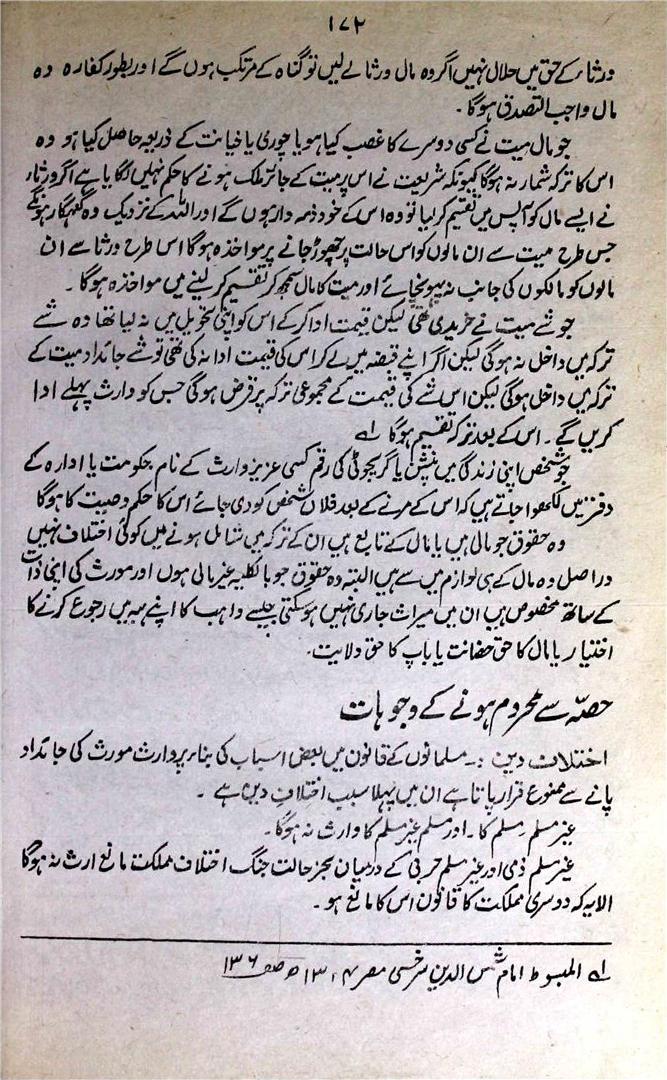 ۱۷۲
ورثاء کے حق میں حلال نہیں اگر وہ مال ورثا لے لیں تو گناہ کے مرتکب ہوں گے اور بطور کفارہ وہ
مال واجب التصدق ہوگا۔
جو مال میت نے کسی دوسرے کا غصب کیا ہو یا چوری یا خیانت کے ذریعہ حاصل کیا ہو وہ
اس کا ترکہ شمار نہ ہوگا کیونکہ شریعت نے اس پر میت کے جائز ملک ہونے کا حکم نہیں لگایا ہے اگر ورثار
نے ایسے مال کو آپس میں تقسیم کر لیا تو وہ اس کے خود ذمہ دار ہوں گے اور اللہ کے نزدیک وہ گنہگار ہونگے
جس طرح میت سے ان مالوں کو اس حالت پر چھوڑ جانے پر مواخذہ ہوگا اس طرح ورثا سے ان
مالوں کو مالکوں کی جانب نہ پہونچائے اور میت کا مال سمجھ کر تقسیم کر لینے میں مواخذہ ہوگا۔
جو شے میت نے خریدی تھی لیکن قیمت ادا کر کے اس کو اپنی تحویل میں نہ لیا تھا وہ شے
ترکہ میں داخل نہ ہوگی لیکن اگر اپنے قبضہ میں لے کر اس کی قیمت ادا نہ کی تھی تو شے جائداد میت کے
ترکہ میں داخل ہوگی لیکن اس شے کی قیمت کے مجموعی ترکہ پر قرض ہوگی جس کو وارث پہلے ادا
کریں گے۔ اس کے بعد ترکہ تقسیم ہوگا ۱ے
جو شخص اپنی زندگی میں پنشن یا گریجوٹی کی رقم کسی عزیز وارث کے نام حکومت یا ادارہ کے
دفتر میں لکھوا جاتے ہیں کہ اس کے مرنے کے بعد فلاں شخص کو دی جائے اس کا حکم وصیت کا ہوگا
وہ حقوق جو مالی ہیں یا مال کے تابع ہیں ان کے ترکہ میں شامل ہونے میں کوئی اختلاف نہیں
دراصل وہ مال کے ہی لوازم میں سے ہیں البتہ وہ حقوق جو بالکلیہ غیر مالی ہوں اور مورث کی اپنی ذات
کے ساتھ مخصوص ہیں ان میں میراث جاری نہیں ہو سکتی جیسے واہب کا اپنے ہبہ میں رجوع کرنے کا
اختیار یا ماں کا حق حضانت یا باپ کا حق ولایت۔
حصّہ سے محروم ہونے کے وجوہات
اختلاف دین :۔ مسلمانوں کے قانون میں بعض اسباب کی بناء پر وارث مورث کی جائداد
پانے سے ممنوع قرار پاتا ہے ان میں پہلا سبب اختلاف دین ہے۔
غیر مسلم، مسلم کا۔ اور مسلم غیر مسلم کا وارث نہ ہوگا۔
غیر مسلم ذمی اور غیر مسلم حربی کے درمیان بجز حالت جنگ اختلاف مملکت مانع ارث نہ ہوگا
الا یہ کہ دوسری مملکت کا قانون اس کا مانع ہو۔
۱ے المبسوط امام شمس الدین سرخسی مصر ۱۳۰۴ھ صفہ ۱۳۶